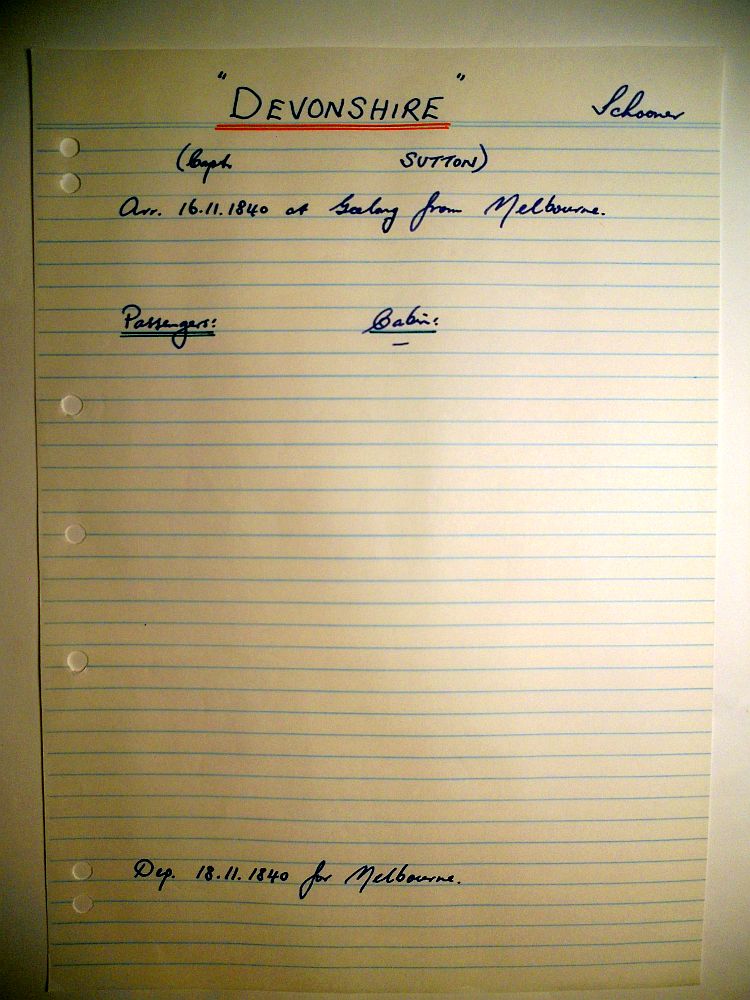 "DEVONSHIRE" Schooner
(Capt. SUTTON)
Arr. 16.11.1840 at Geelong from Melbourne.
Passengers: Cabin:
—
Dep. 18.11.1840 for Melbourne.